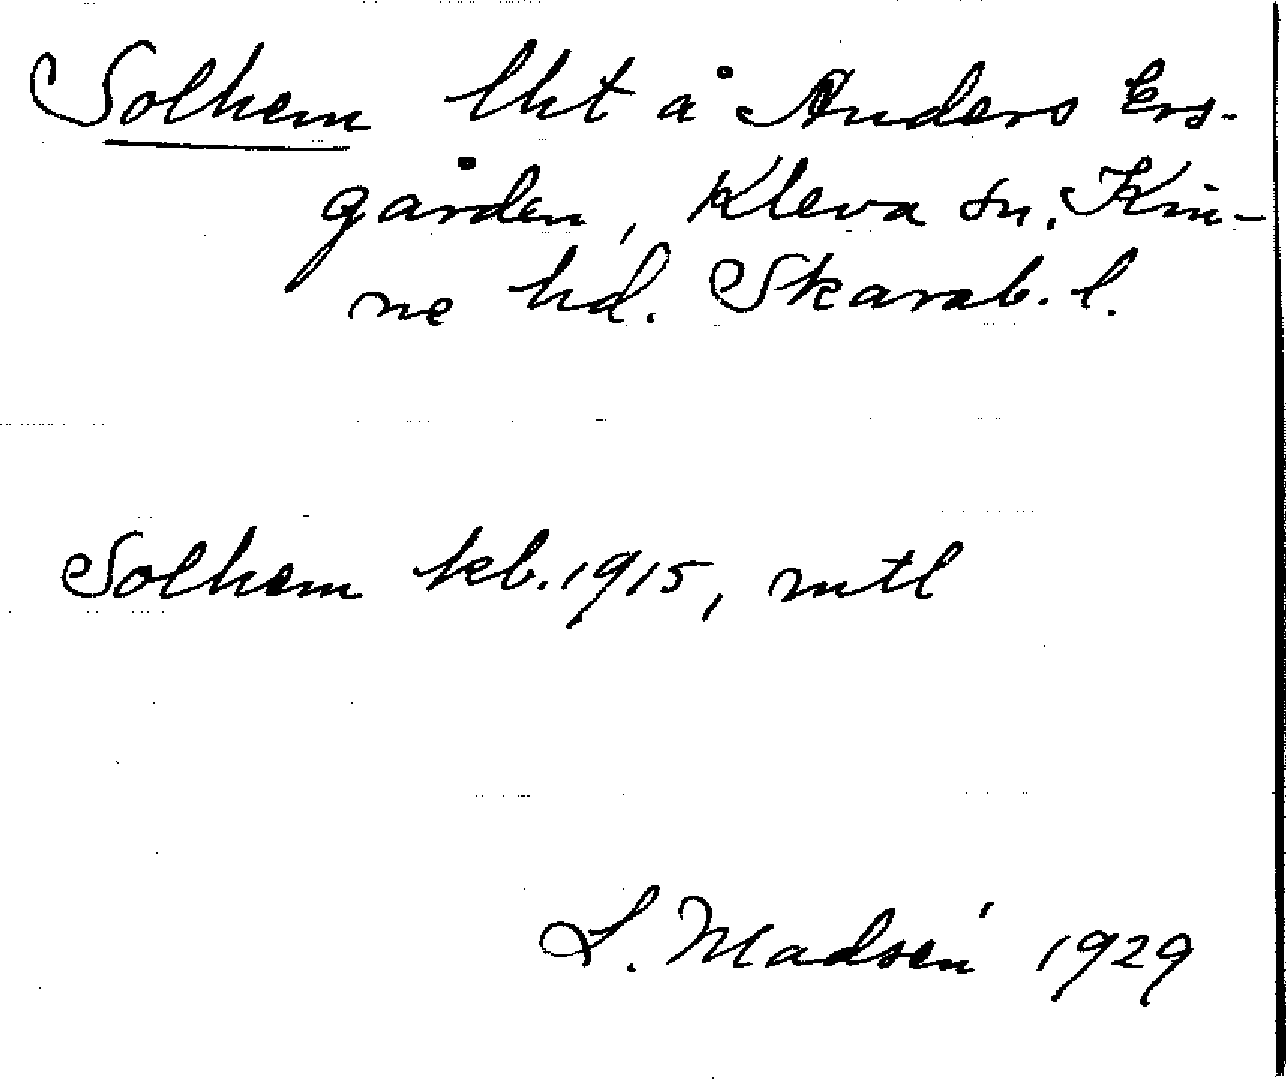 Solhem lht å Anders Ers-
gården, Kleva sn. Kin-
ne hd. Skarab. l.
Solhem kb. 1915, mtl
L. Madsén 1929